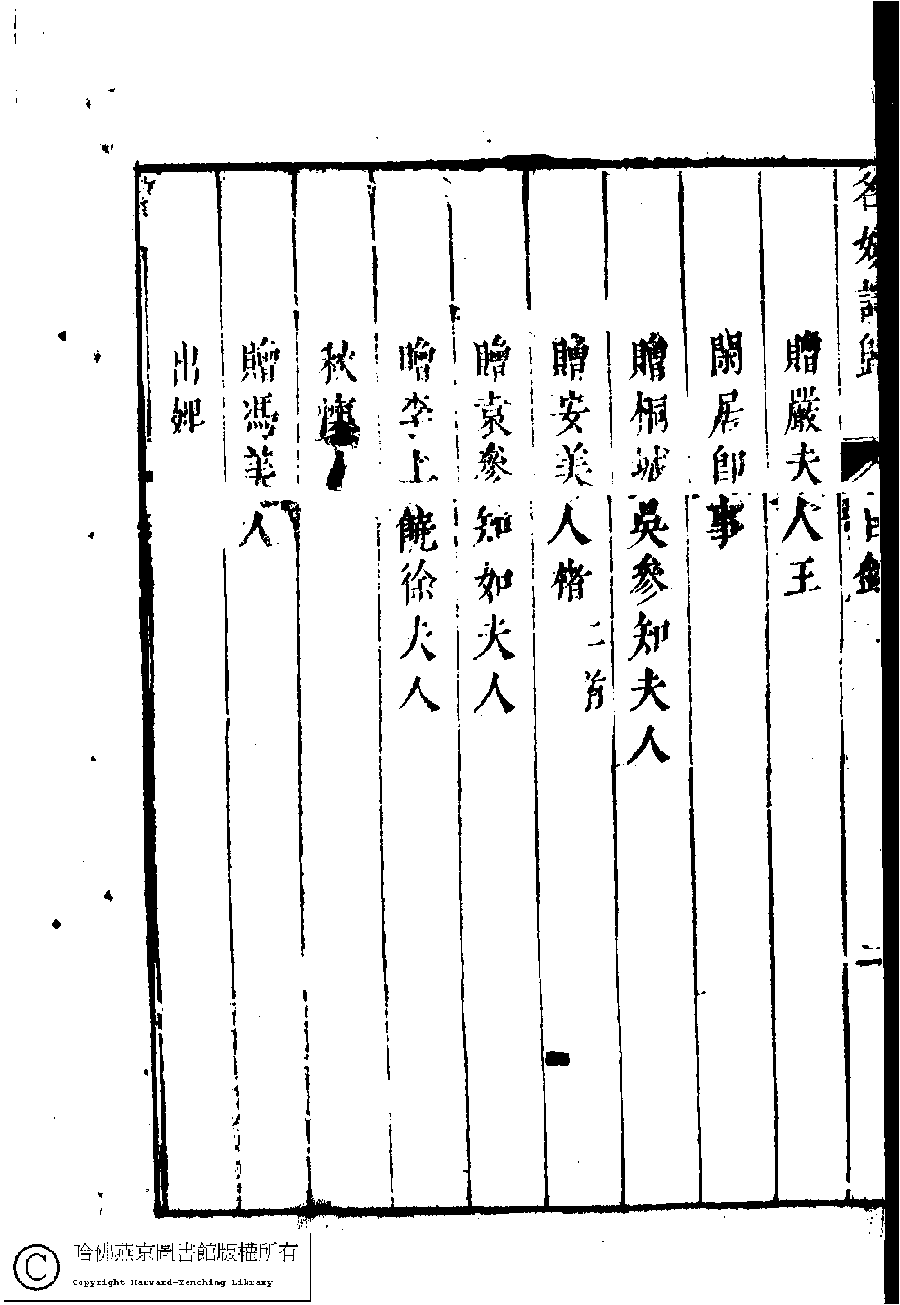 名媛詩歸 目錄 二
贈嚴夫人王
閑居卽事
贈桐城吳參知夫人
贈安美人楷 二首
贈袁參知如夫人
贈李上饒徐夫人
秋燈
贈馮美人
出郊
哈佛燕京圖書館版權所有
Copyright Harvard-Yenching Library